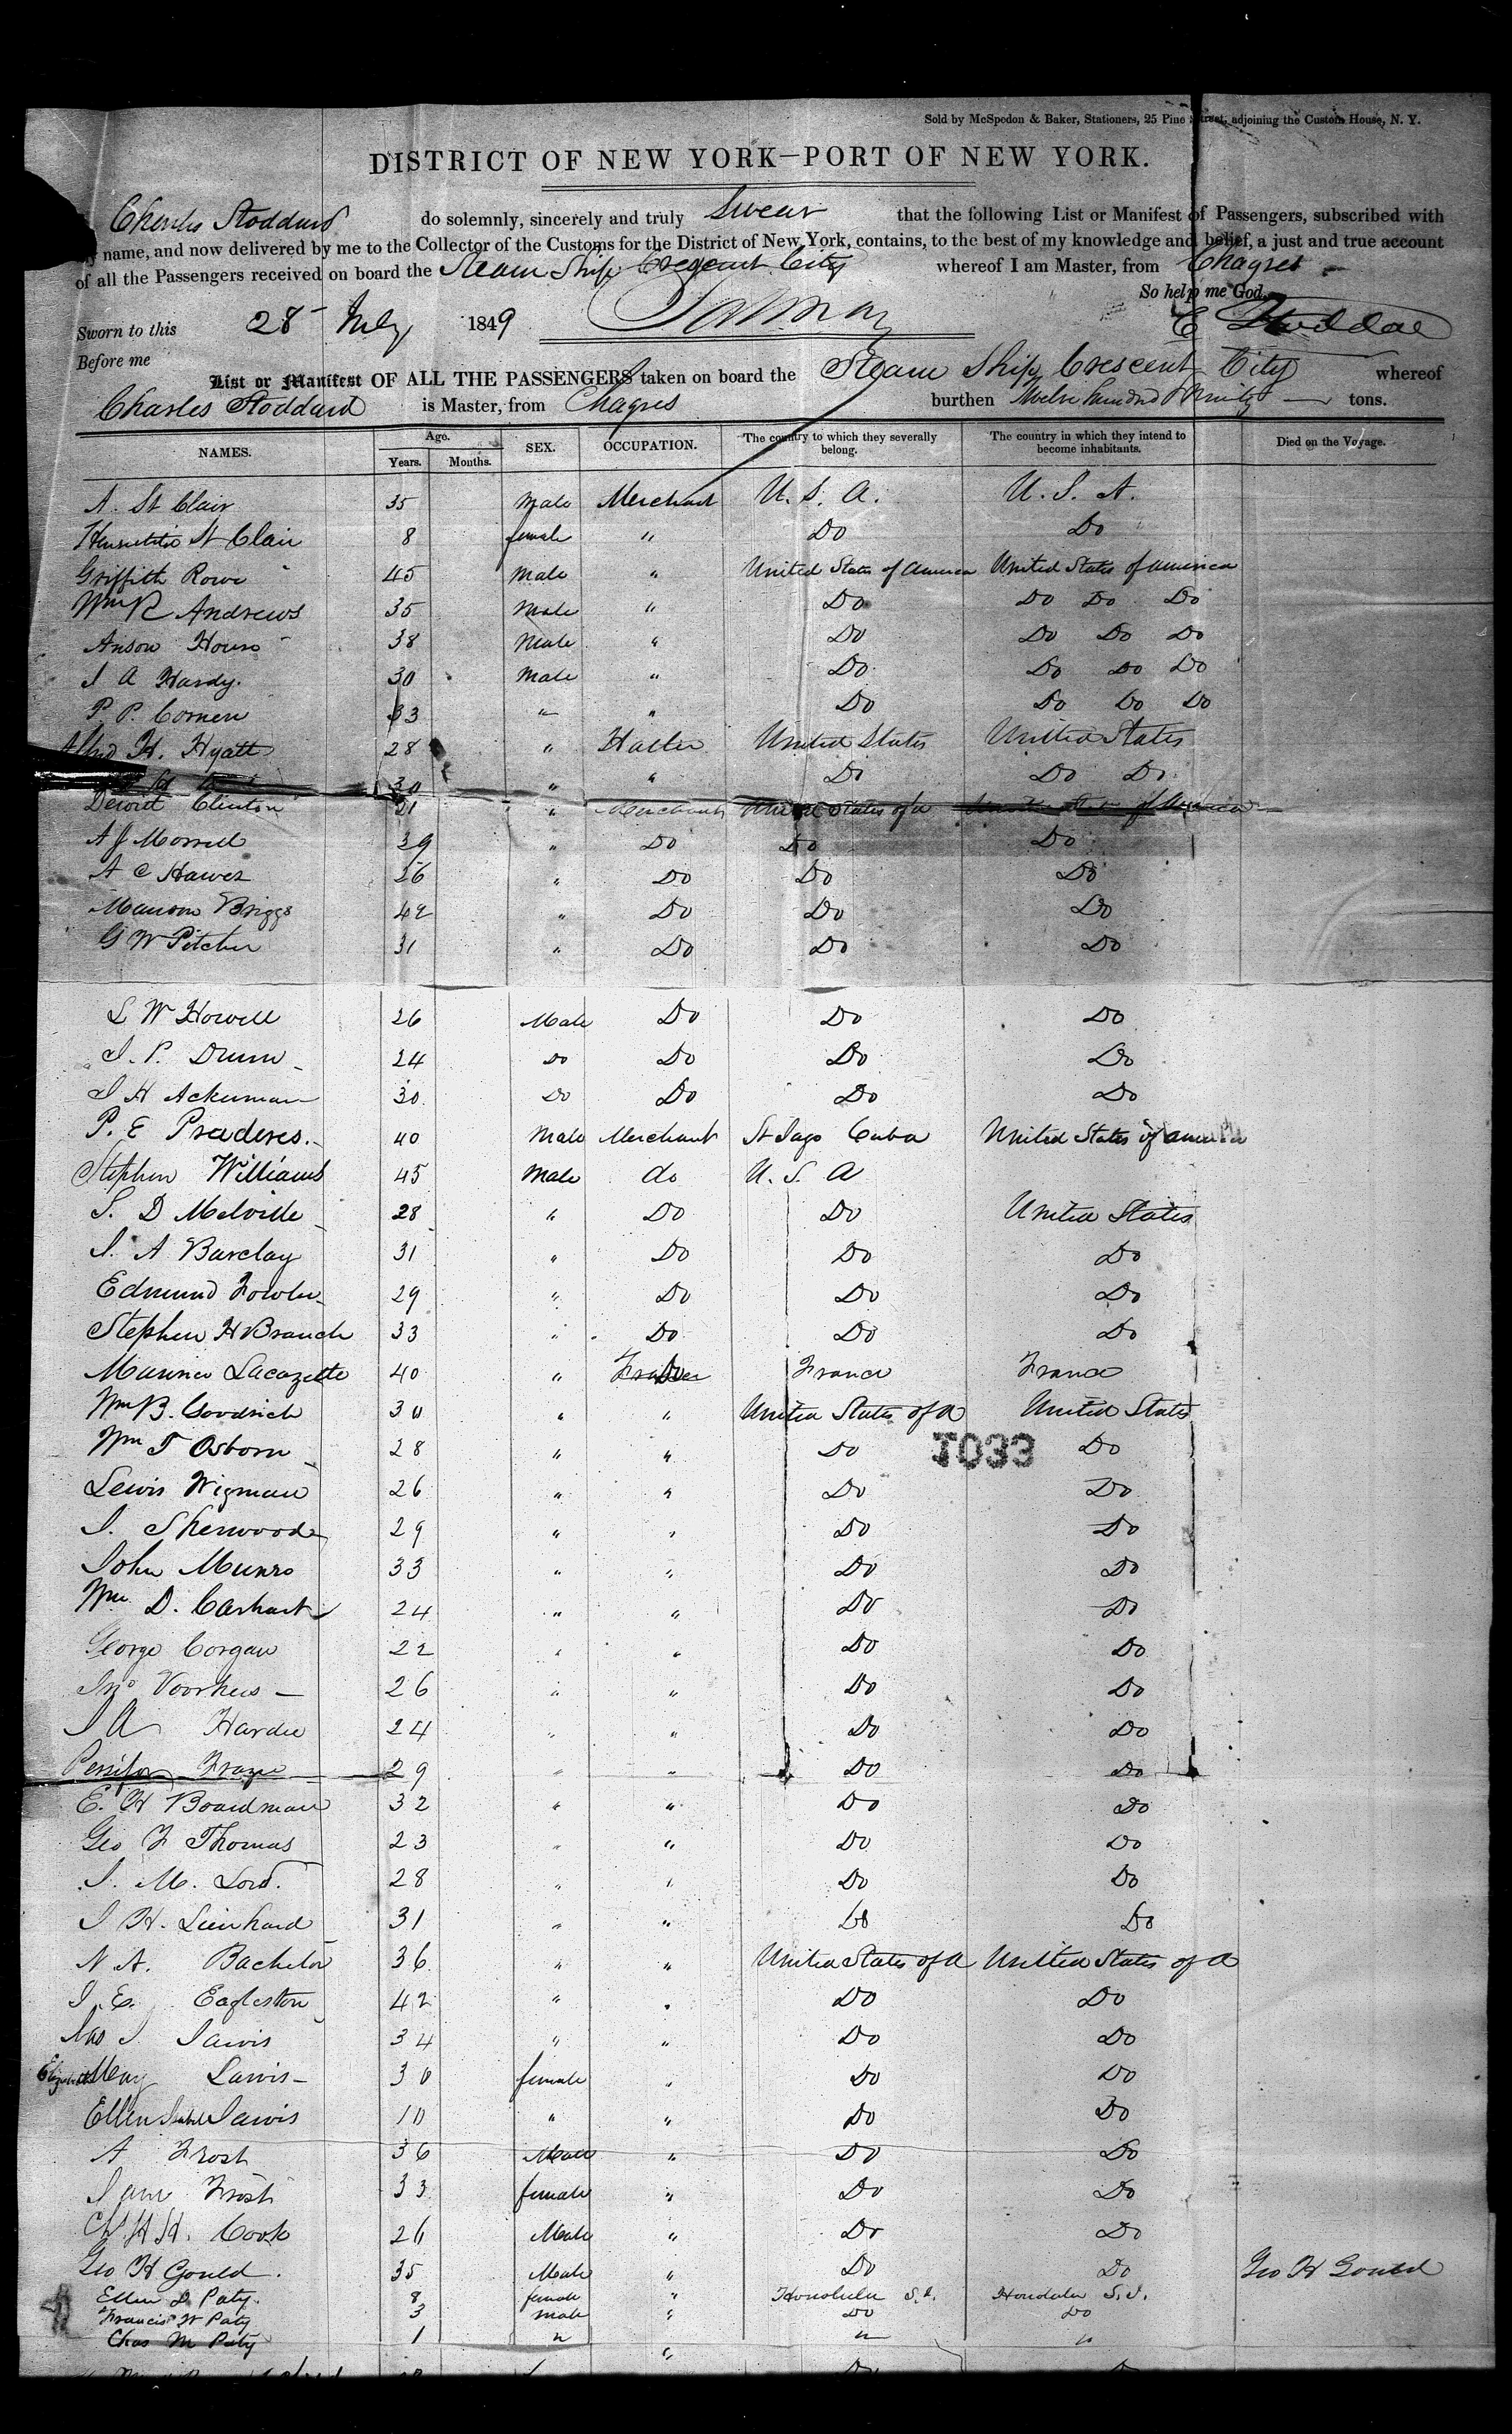 Sold by McSpedon & Baker, Stationers, 25 Pine Street, adjoining the Custom House, N. Y.
DISTRICT OF NEW YORK—PORT OF NEW YORK.
Charles Stoddard do solemnly, sincerely and truly Swear that the following List or Manifest of Passengers, subscribed with
my name, and now delivered by me to the Collector of the Customs for the District of New York, contains, to the best of my knowledge and belief, a just and true account
of all the Passengers received on board the Steam Ship Crescent City whereof I am Master, from Chagres
So help me God.
Sworn to this 28 July 1849 C Stoddard
Before me
List or Manifest OF ALL THE PASSENGERS taken on board the Steam Ship Crescent City whereof
Charles Stoddard is Master, from Chagres burthen Twelve hundred & Ninety tons.
NAMES. Age. Years. Months. SEX. OCCUPATION. The country to which they severally belong. The country in which they intend to become inhabitants. Died on the Voyage.
A. St Clair 35 Male Merchant U. S. A. U. S. A.
Henrietta St Clair 8 female " Do Do
Griffith Rowe 45 Male " United States of America United States of America
Wm R Andrews 35 Male " Do Do Do Do
Anson House 38 Male " Do Do Do Do
J A Hardy. 30 Male " Do Do Do Do
P. P. Cornen 33 " " Do Do Do Do
H. Hyatt 28 " Hatter United States United States
30 " " Do Do Do
Dewitt Clinton 21 " Merchant United States of A United States of America
A J Morrell 39 " Do Do Do
A C Hawes 26 " Do Do Do
Manson Briggs 42 " Do Do Do
G W Pitcher 31 " Do Do Do
L W Howell 26 Male Do Do Do
J. P. Drum 24 Do Do Do Do
J H Ackerman 30 Do Do Do Do
P. E Praderes. 40 Male Merchant St Jago Cuba United States of America
Stephen Williams 45 Male do U. S. A
S. D Melville 28 " Do Do United States
J. A Barclay 31 " Do Do Do
Edmund Fowler 29 " Do Do Do
Stephen H Branch 33 " Do Do Do
Maurice Lacazette 40 " Do France France
Wm B. Goodrich 30 " " United States of A United States
Wm T Osborn 28 " " Do Do
1033
Lewis Wigman 26 " " Do Do
J. Sherwood 29 " " Do Do
John Munro 33 " " Do Do
Wm D. Carhart 24 " " Do Do
George Corgan 22 " " Do Do
Jno Voorhees 26 " " Do Do
J A Hardee 24 " " Do Do
Persifor Frazer 29 " " Do Do
E. H Boardman 32 " " Do Do
Geo F Thomas 23 " " Do Do
J. M. Lord. 28 " " Do Do
J H. Lienhard 31 " " Do Do
N A. Bachelor 36 " " United States of A United States of A
J. E. Eagleston 42 " " Do Do
J. Jarvis 34 " " Do Do
Elizabeth Mary Jarvis 30 female " Do Do
Ellen Isabel Jarvis 10 " " Do Do
A Frost 36 Male " Do Do
Jane Frost 33 female " Do Do
H. Cook 26 Male " Do Do
Geo H Gould. 35 Male " Do Do Geo H Gould
Ellen D Paty. 8 female " Honolulu S. I. Honolulu S. I.
Francis W Paty 3 male " Do Do
Chas M Paty 1 " " " "